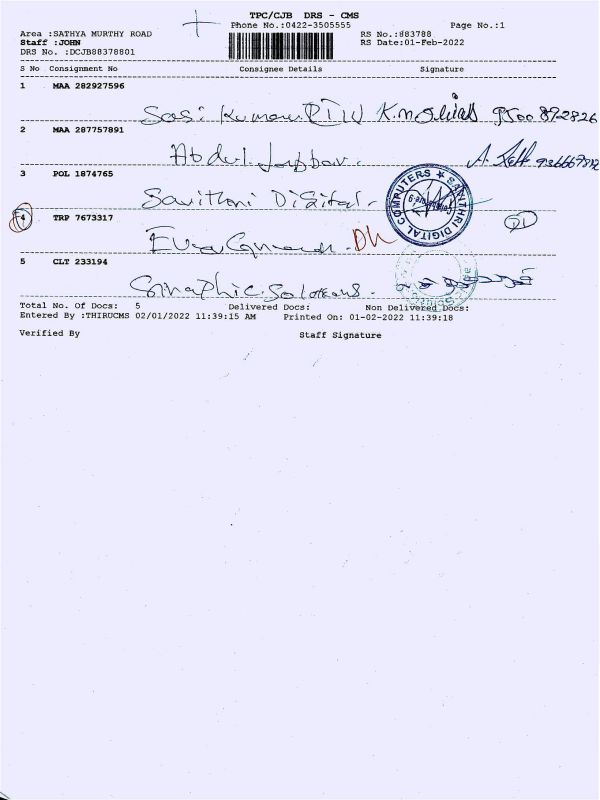 TPC/CJB DRS - CMS
Phone No.:0422-3505555 Page No.:1
Area :SATHYA MURTHY ROAD RS No.:883788
Staff :JOHN RS Date:01-Feb-2022
DRS No. :DCJB88378801
S No Consignment No Consignee Details Signature
1 MAA 282927596
Sasi Kumar
2 MAA 287757891
Abdul Jabbar.
3 POL 1874765
Savithri Digital.
SAVITHRI DIGITAL COMPUTERS
4 TRP 7673317
5 CLT 233194
Graphic Solutions.
Total No. Of Docs: 5 Delivered Docs: Non Delivered Docs:
Entered By :THIRUCMS 02/01/2022 11:39:15 AM Printed On: 01-02-2022 11:39:18
Verified By Staff Signature